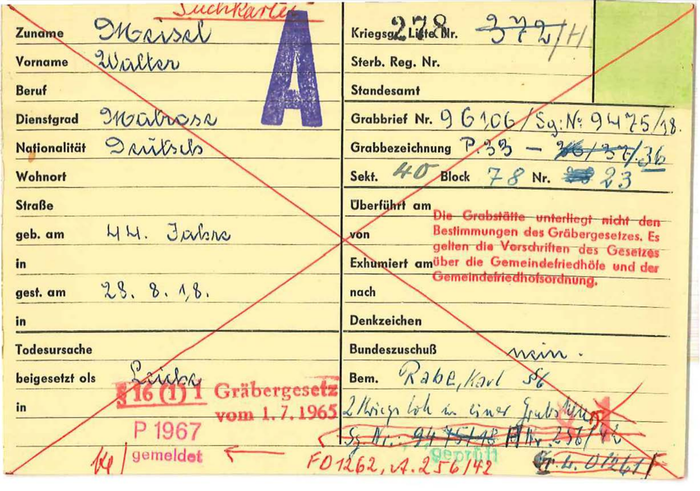 Suchkartei
Zuname Meisel
Vorname Walter
Beruf
Dienstgrad Matrose
Nationalität Deutsch
Wohnort
Straße
geb. am 44. Jahre
in
gest. am 28. 8. 18.
in
Todesursache
beigesetzt als Leiche
in
A
§ 16 (1) 1 Gräbergesetz
vom 1.7.1965
P 1967
gemeldet
Kriegsgr. Liste Nr. 278 372/H
Sterb. Reg. Nr.
Standesamt
Grabbrief Nr. 96106/Sg: Nr 9475/18.
Grabbezeichnung P. 33 – 36
Sekt. 40 Block 78 Nr. 23
Überführt am
von
Exhumiert am
nach
Die Grabstätte unterliegt nicht den
Bestimmungen des Gräbergesetzes. Es
gelten die Vorschriften des Gesetzes
über die Gemeindefriedhöfe und der
Gemeindefriedhofsordnung.
Denkzeichen
Bundeszuschuß nein.
Bem. Rabe, Karl 56
2 Kriegstote in einer Grabstätte
Sg. Nr.: 9475/18 Nr 256/42
geprüft
FO 1262, A. 256/42